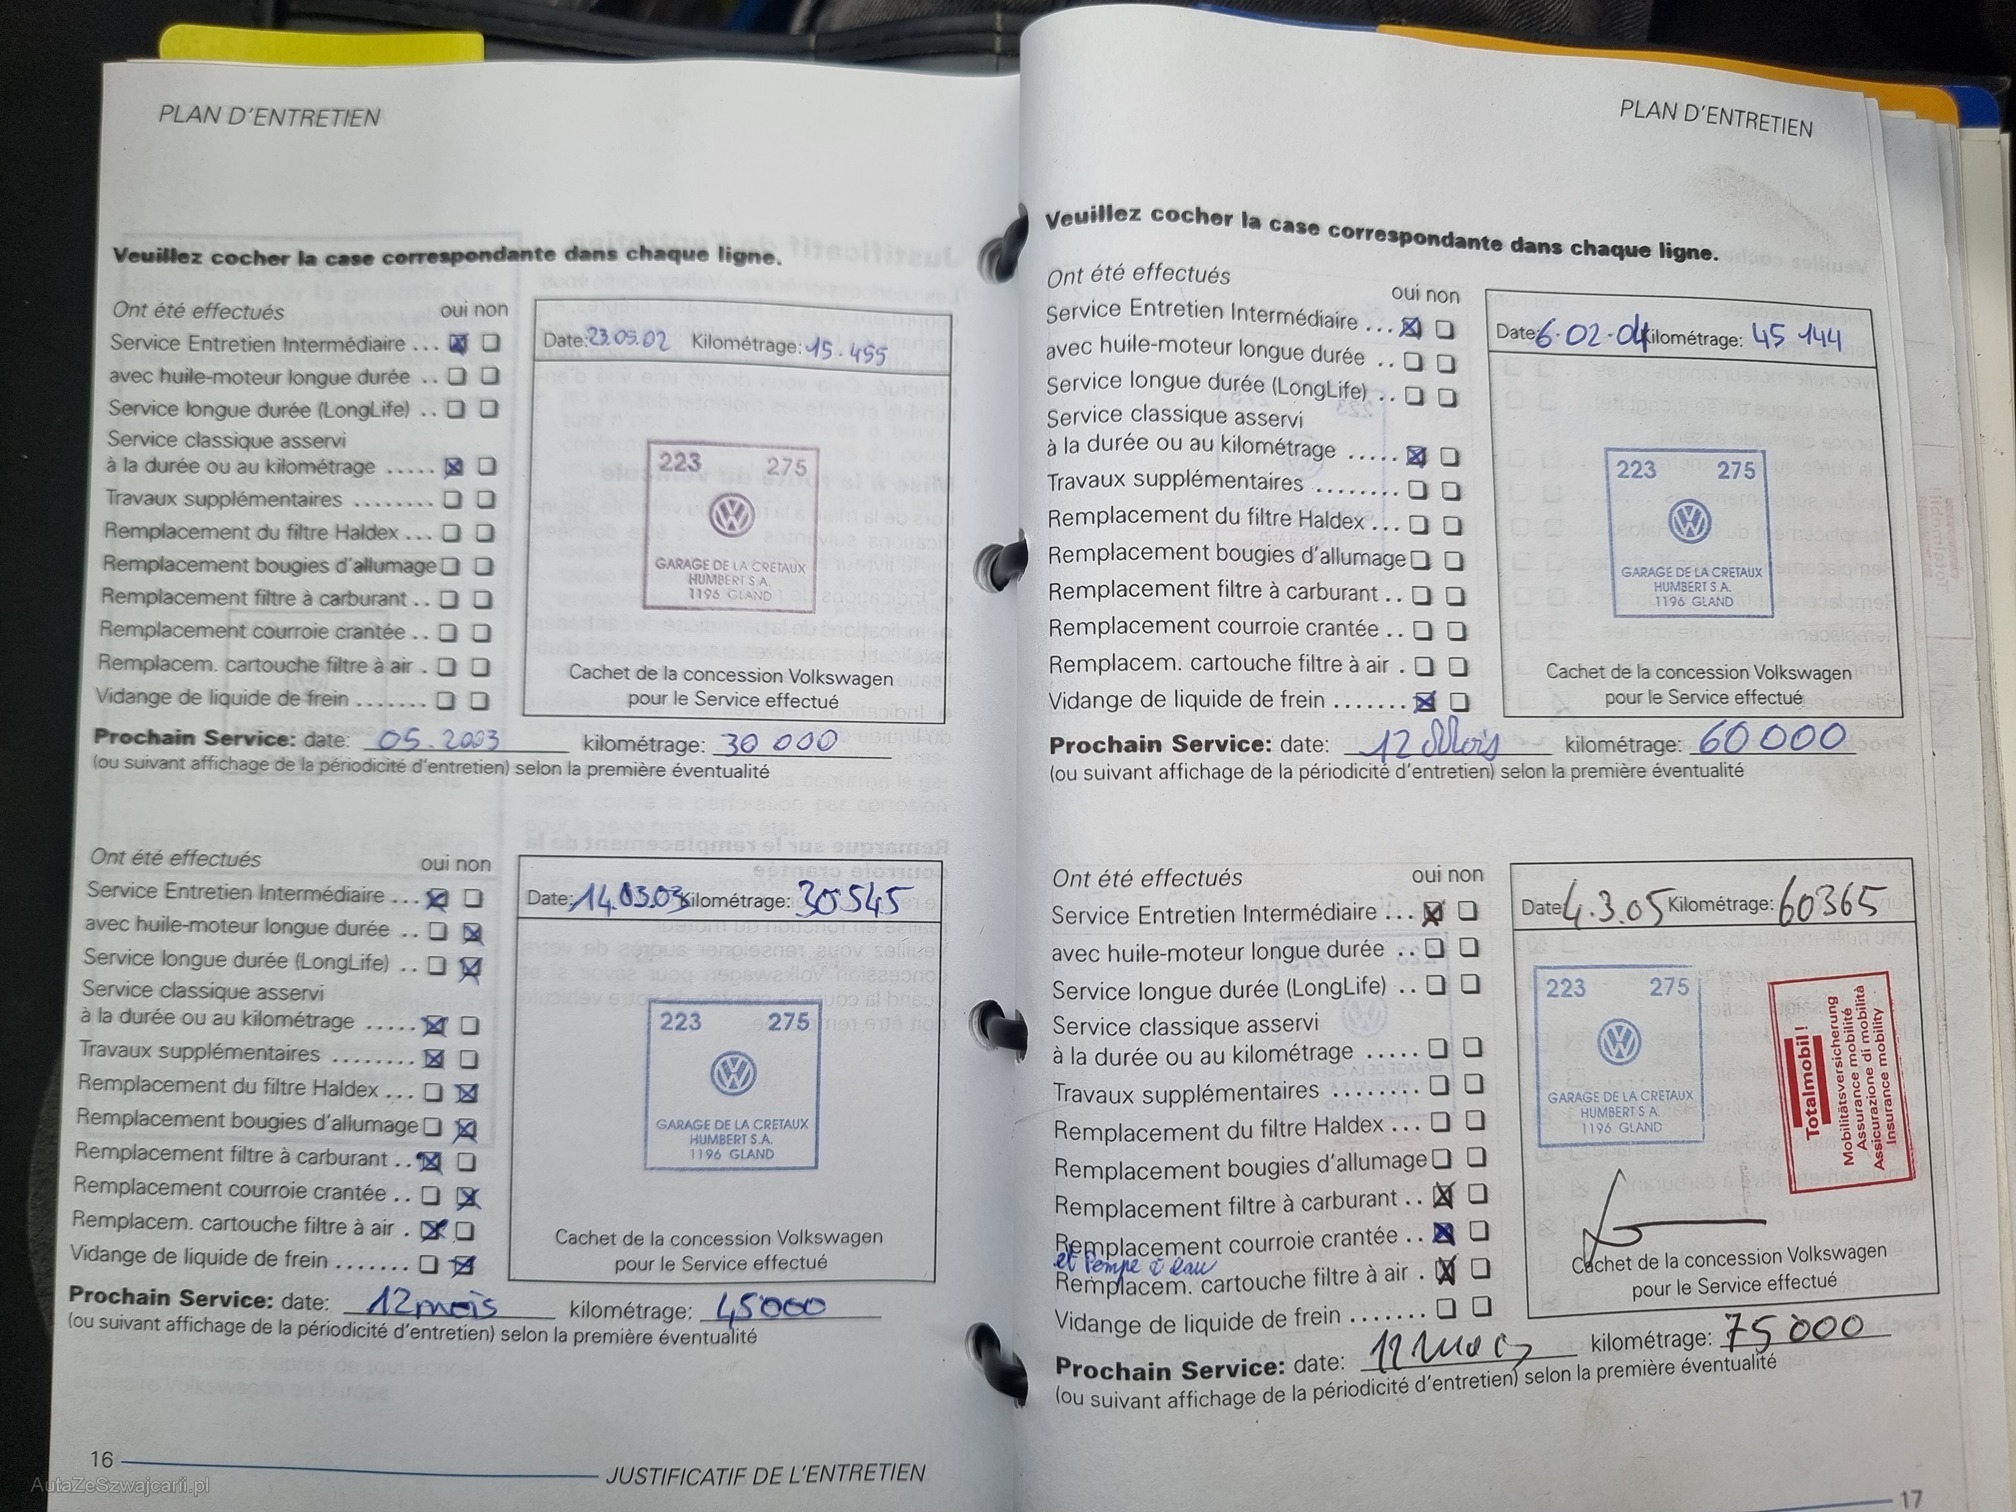 PLAN D'ENTRETIEN
Veuillez cocher la case correspondante dans chaque ligne.
Ont été effectués oui non
Service Entretien Intermédiaire ...
avec huile-moteur longue durée ..
Service longue durée (LongLife) ..
Service classique asservi
à la durée ou au kilométrage .....
Travaux supplémentaires ........
Remplacement du filtre Haldex ...
Remplacement bougies d'allumage
Remplacement filtre à carburant ..
Remplacement courroie crantée ..
Remplacem. cartouche filtre à air .
Vidange de liquide de frein .......
Date: 23.09.02 Kilométrage: 15.455
223 275
GARAGE DE LA CRETAUX
HUMBERT S.A.
1196 GLAND
Cachet de la concession Volkswagen
pour le Service effectué
Prochain Service: date: 05.2003 kilométrage: 30 000
(ou suivant affichage de la périodicité d'entretien) selon la première éventualité
Ont été effectués oui non
Service Entretien Intermédiaire ...
avec huile-moteur longue durée ..
Service longue durée (LongLife) ..
Service classique asservi
à la durée ou au kilométrage .....
Travaux supplémentaires ........
Remplacement du filtre Haldex ...
Remplacement bougies d'allumage
Remplacement filtre à carburant ..
Remplacement courroie crantée ..
Remplacem. cartouche filtre à air .
Vidange de liquide de frein .......
Date: 14.03.03 Kilométrage: 30545
223 275
GARAGE DE LA CRETAUX
HUMBERT S.A.
1196 GLAND
Cachet de la concession Volkswagen
pour le Service effectué
Prochain Service: date: 12 mois kilométrage: 45'000
(ou suivant affichage de la périodicité d'entretien) selon la première éventualité
16 JUSTIFICATIF DE L'ENTRETIEN
AutaZeSzwajcarii.pl
PLAN D'ENTRETIEN
Veuillez cocher la case correspondante dans chaque ligne.
Ont été effectués oui non
Service Entretien Intermédiaire ...
avec huile-moteur longue durée ..
Service longue durée (LongLife) ..
Service classique asservi
à la durée ou au kilométrage .....
Travaux supplémentaires ........
Remplacement du filtre Haldex ...
Remplacement bougies d'allumage
Remplacement filtre à carburant ..
Remplacement courroie crantée ..
Remplacem. cartouche filtre à air .
Vidange de liquide de frein .......
Date: 6.02.04 Kilométrage: 45 144
223 275
GARAGE DE LA CRETAUX
HUMBERT S.A.
1196 GLAND
Cachet de la concession Volkswagen
pour le Service effectué
Prochain Service: date: 12 Mois kilométrage: 60 000
(ou suivant affichage de la périodicité d'entretien) selon la première éventualité
Ont été effectués oui non
Service Entretien Intermédiaire ...
avec huile-moteur longue durée ..
Service longue durée (LongLife) ..
Service classique asservi
à la durée ou au kilométrage .....
Travaux supplémentaires ........
Remplacement du filtre Haldex ...
Remplacement bougies d'allumage
Remplacement filtre à carburant ..
Remplacement courroie crantée ..
et Pompe à eau
Remplacem. cartouche filtre à air .
Vidange de liquide de frein .......
Date: 4.3.05 Kilométrage: 60365
223 275
GARAGE DE LA CRETAUX
HUMBERT S.A.
1196 GLAND
Totalmobil!
Mobilitätsversicherung
Assurance mobilité
Assicurazione di mobilità
Insurance mobility
Cachet de la concession Volkswagen
pour le Service effectué
Prochain Service: date: 12 mois kilométrage: 75'000
(ou suivant affichage de la périodicité d'entretien) selon la première éventualité
17